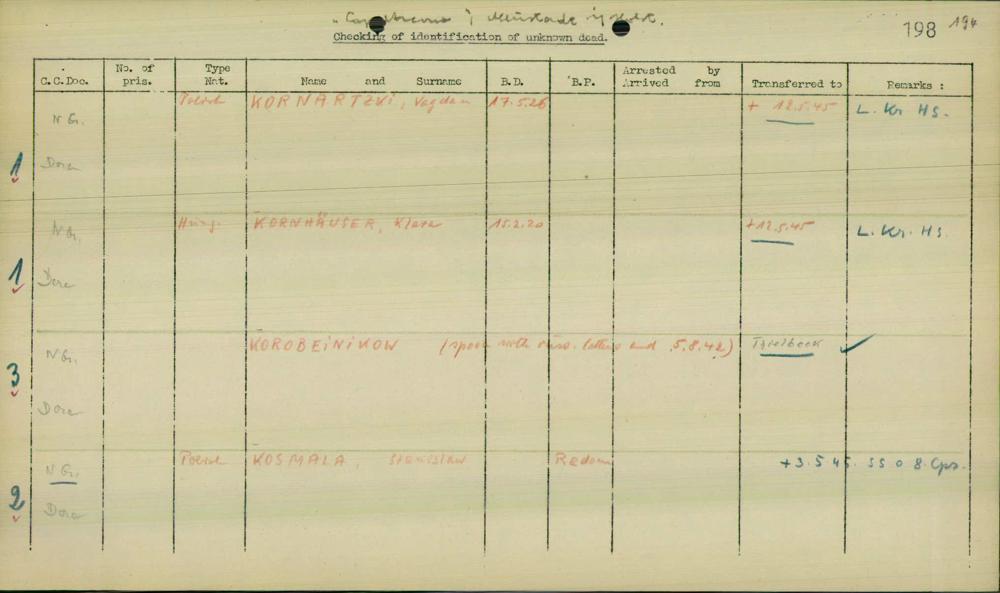 Neustadt i/Holst.
198 194
Checking of identification of unknown dead.
C.C.Doc. No. of pris. Type Nat. Name and Surname B.D. B.P. Arrested by Arrived from Transferred to Remarks :
N Gr. Polish KORNARTZKI, 17.5.26 + 12.5.45 L. Kr. Hs.
1 Dora
N Gr. Hung. KORNHÄUSER, Klara 15.2.20 +12.5.45 L. Kr. Hs.
1 Dora
N Gr. KOROBEiNiKOW (spoon with russ. letters and 5.8.42) Thielbeck
3 Dora
N Gr. Polish KOSMALA, Stanislaw Radom +3.5.45
2 Dora